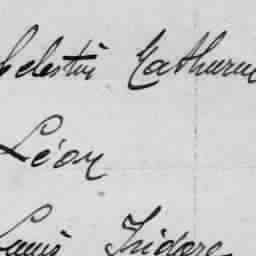 Celestin Mathurin
Léon
Louis Isidore